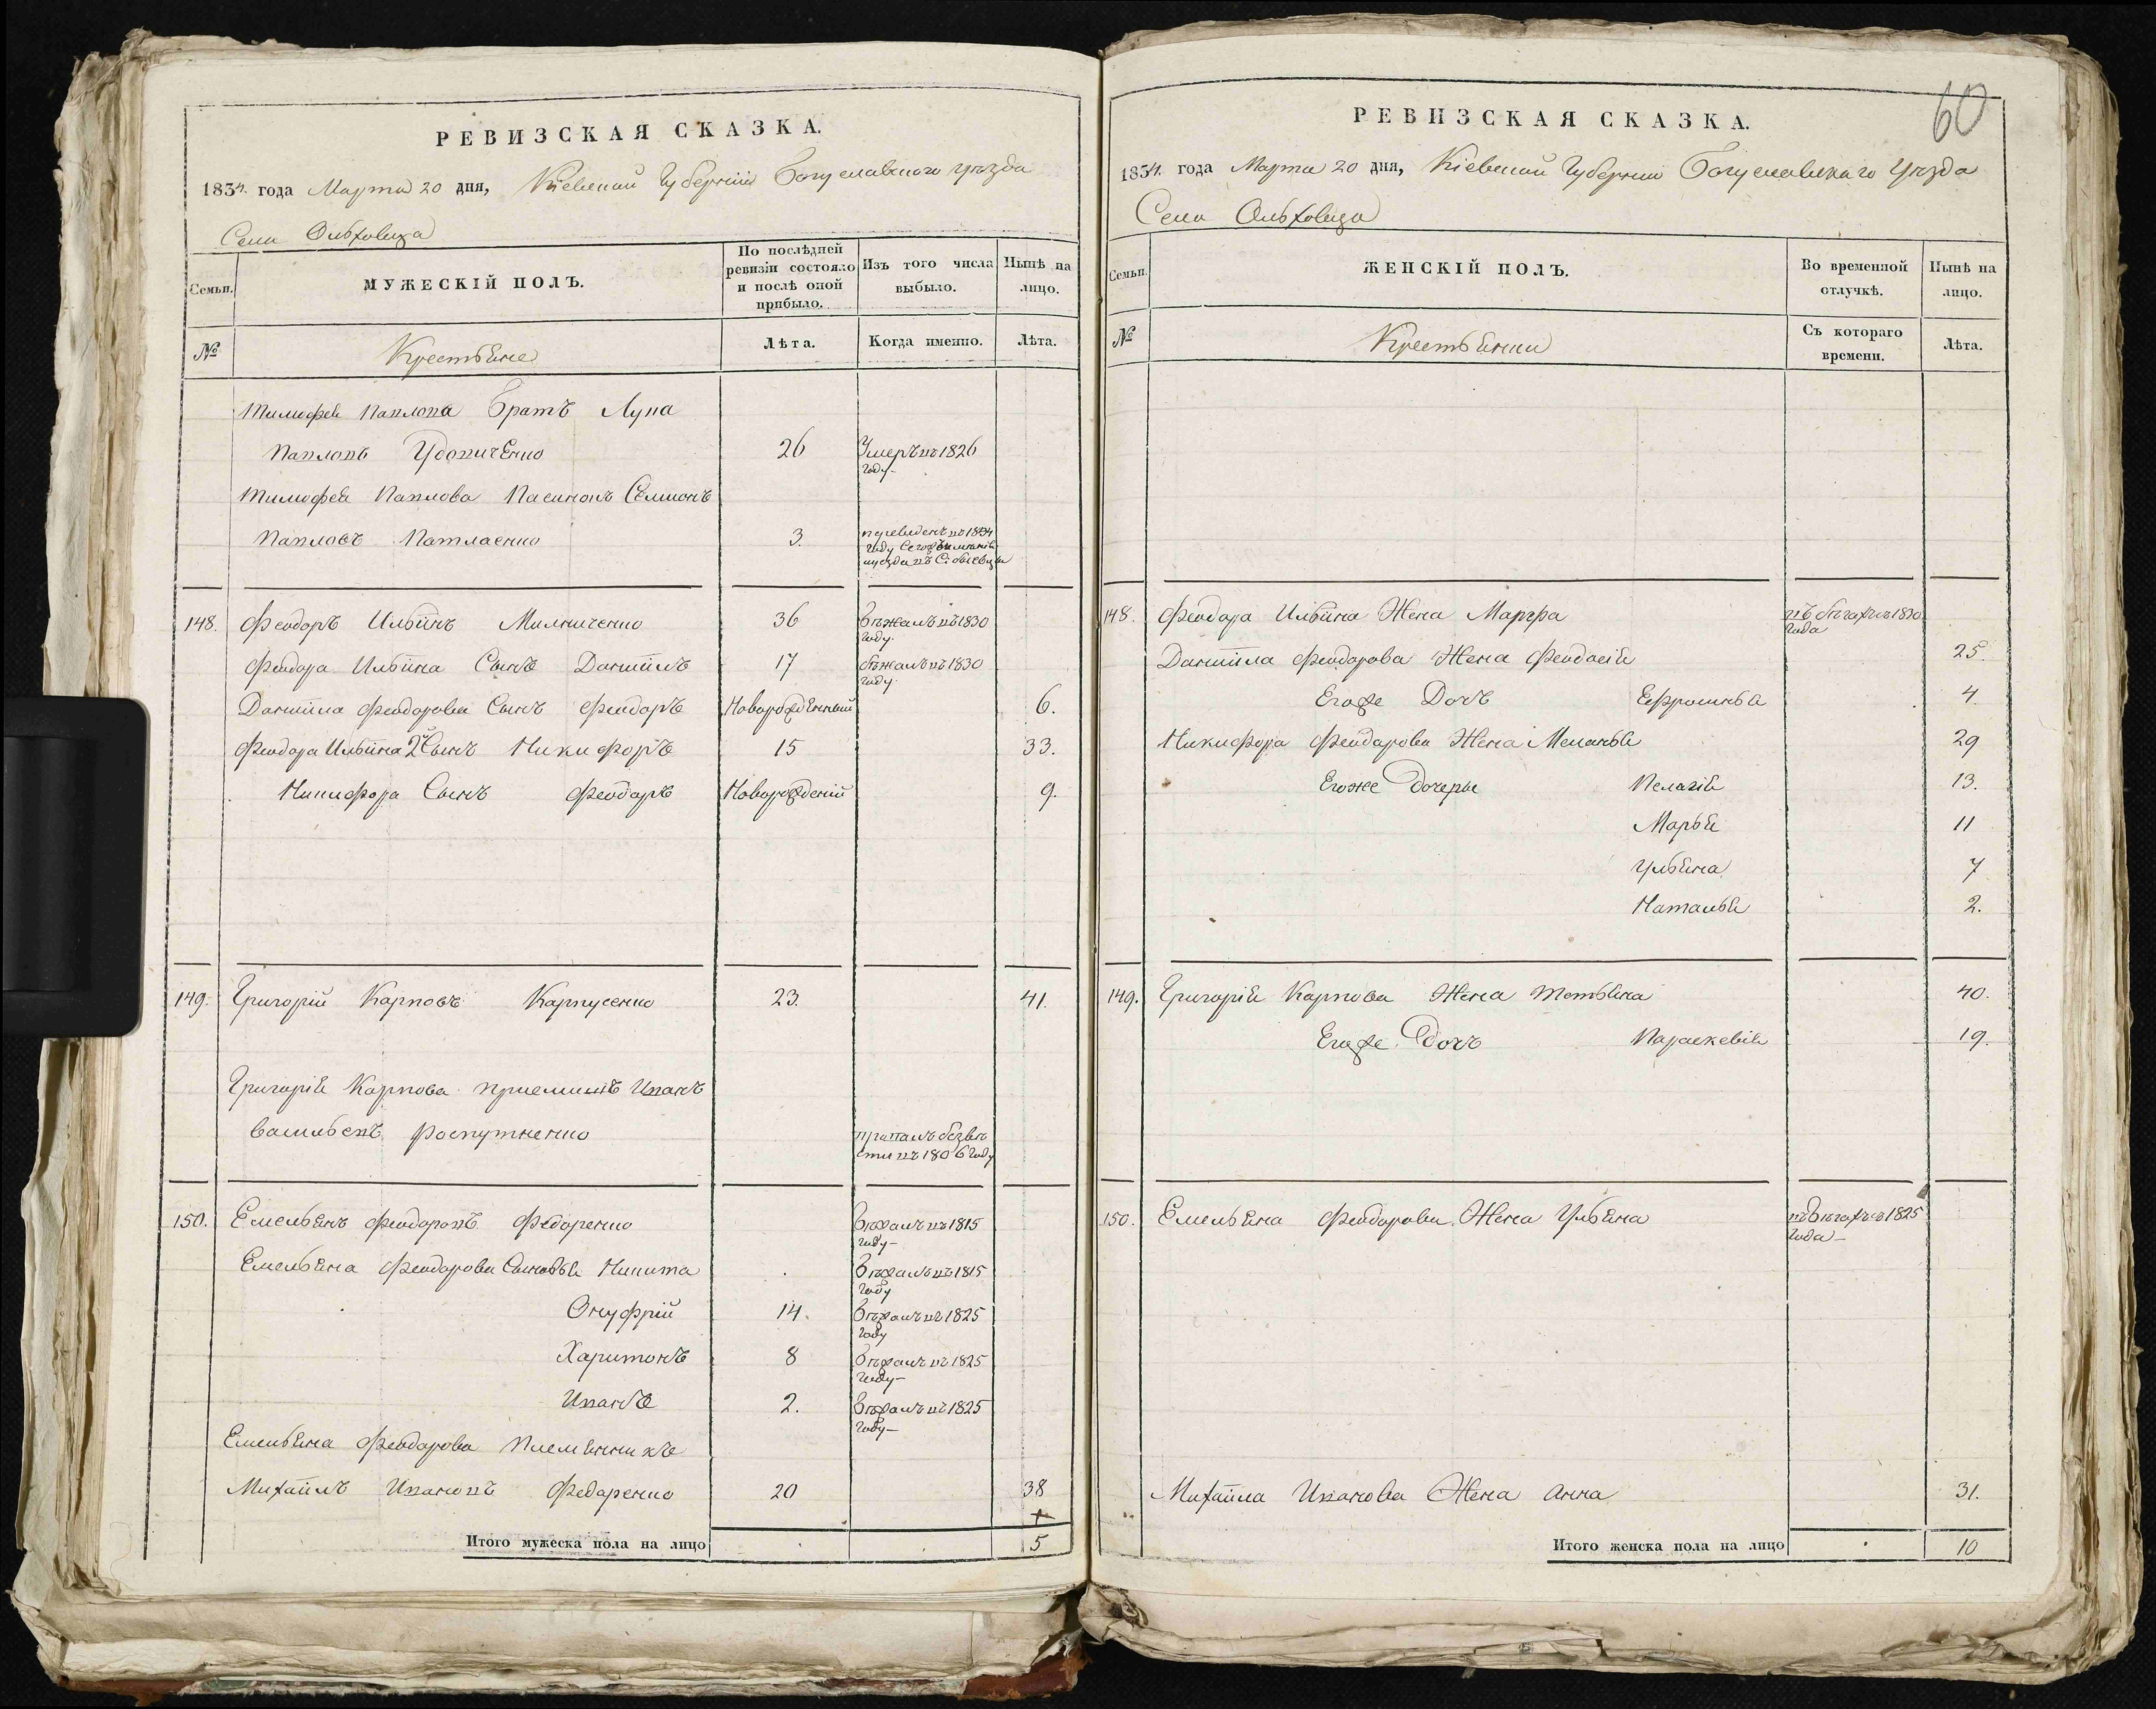 РЕВИЗСКАЯ СКАЗКА.
1834. года Марта 20 дня, Кіевской Губерніи Богуславскаго уѣзда
Села Ольховца
Семьи.
МУЖЕСКІЙ ПОЛЪ.
По послѣдней ревизіи состояло и послѣ оной прибыло.
Изъ того числа выбыло.
Нынѣ на лицо.
№
Крестьяне
Лѣта.
Когда именно.
Лѣта.
Тимофея Павлова братъ Лука
Павловъ Удовиченко 26 Умеръ въ 1826
году
Тимофея Павлова Пасинокъ Семионъ
Павловъ Патлаенко 3. переведенъ въ 1834
году
148. Феодоръ Ильїнъ Милниченко 36 бѣжалъ въ 1830
году.
Феодора Ильїна Сынъ Данїилъ 17 бѣжалъ въ 1830
году.
Данїила Феодорова Сынъ Феодоръ Новорожденный 6.
Феодора Ильїна 2й Сынъ Никифоръ 15 33.
Никифора Сынъ Феодоръ Новорожденій 9.
149. Григорій Карповъ Карпусенко 23. 41.
Григорія Карпова приемишъ Иванъ
Васильевъ Роспутненко пропалъ безвѣ
сти въ 1806 году
150. Емельянъ Феодоровъ Федоренко бѣжалъ въ 1815
году
Емельяна Феодорова Сыновья Никита бѣжалъ въ 1815
году
Онуфрій 14. бѣжалъ въ 1825
году
Харитонъ 8 бѣжалъ въ 1825
году
Иванъ 2. бѣжалъ въ 1825
году
Емельяна Феодорова племянникъ
Михаїлъ Ивановъ Федаренко 20 38
Итого мужеска пола на лицо 5
60
РЕВИЗСКАЯ СКАЗКА.
1834. года Марта 20 дня, Кіевской Губерніи Богуславскаго Уѣзда
Села Ольховца
Семьи.
ЖЕНСКІЙ ПОЛЪ.
Во временной отлучкѣ.
Нынѣ на лицо.
№
Крестьянки
Съ котораго времени.
Лѣта.
148. Феодора Ильїна Жена Марфа въ бѣгахъ съ 1830
года
Данїила Феодорова Жена Феодосія 25.
Егоже Дочъ Ефросинья 4.
Никифора Феодорова Жена Меланья 29
Егоже Дочеры Пелагія 13.
Марья 11
Ульяна 7
Наталья 2.
149. Григорія Карпова Жена Тетьяна 40.
Егоже Дочъ Параскевія 19.
150. Емельяна Феодорова Жена Ульяна въ бѣгахъ съ 1825
года
Михаїла Иванова Жена Анна 31.
Итого женска пола на лицо 10